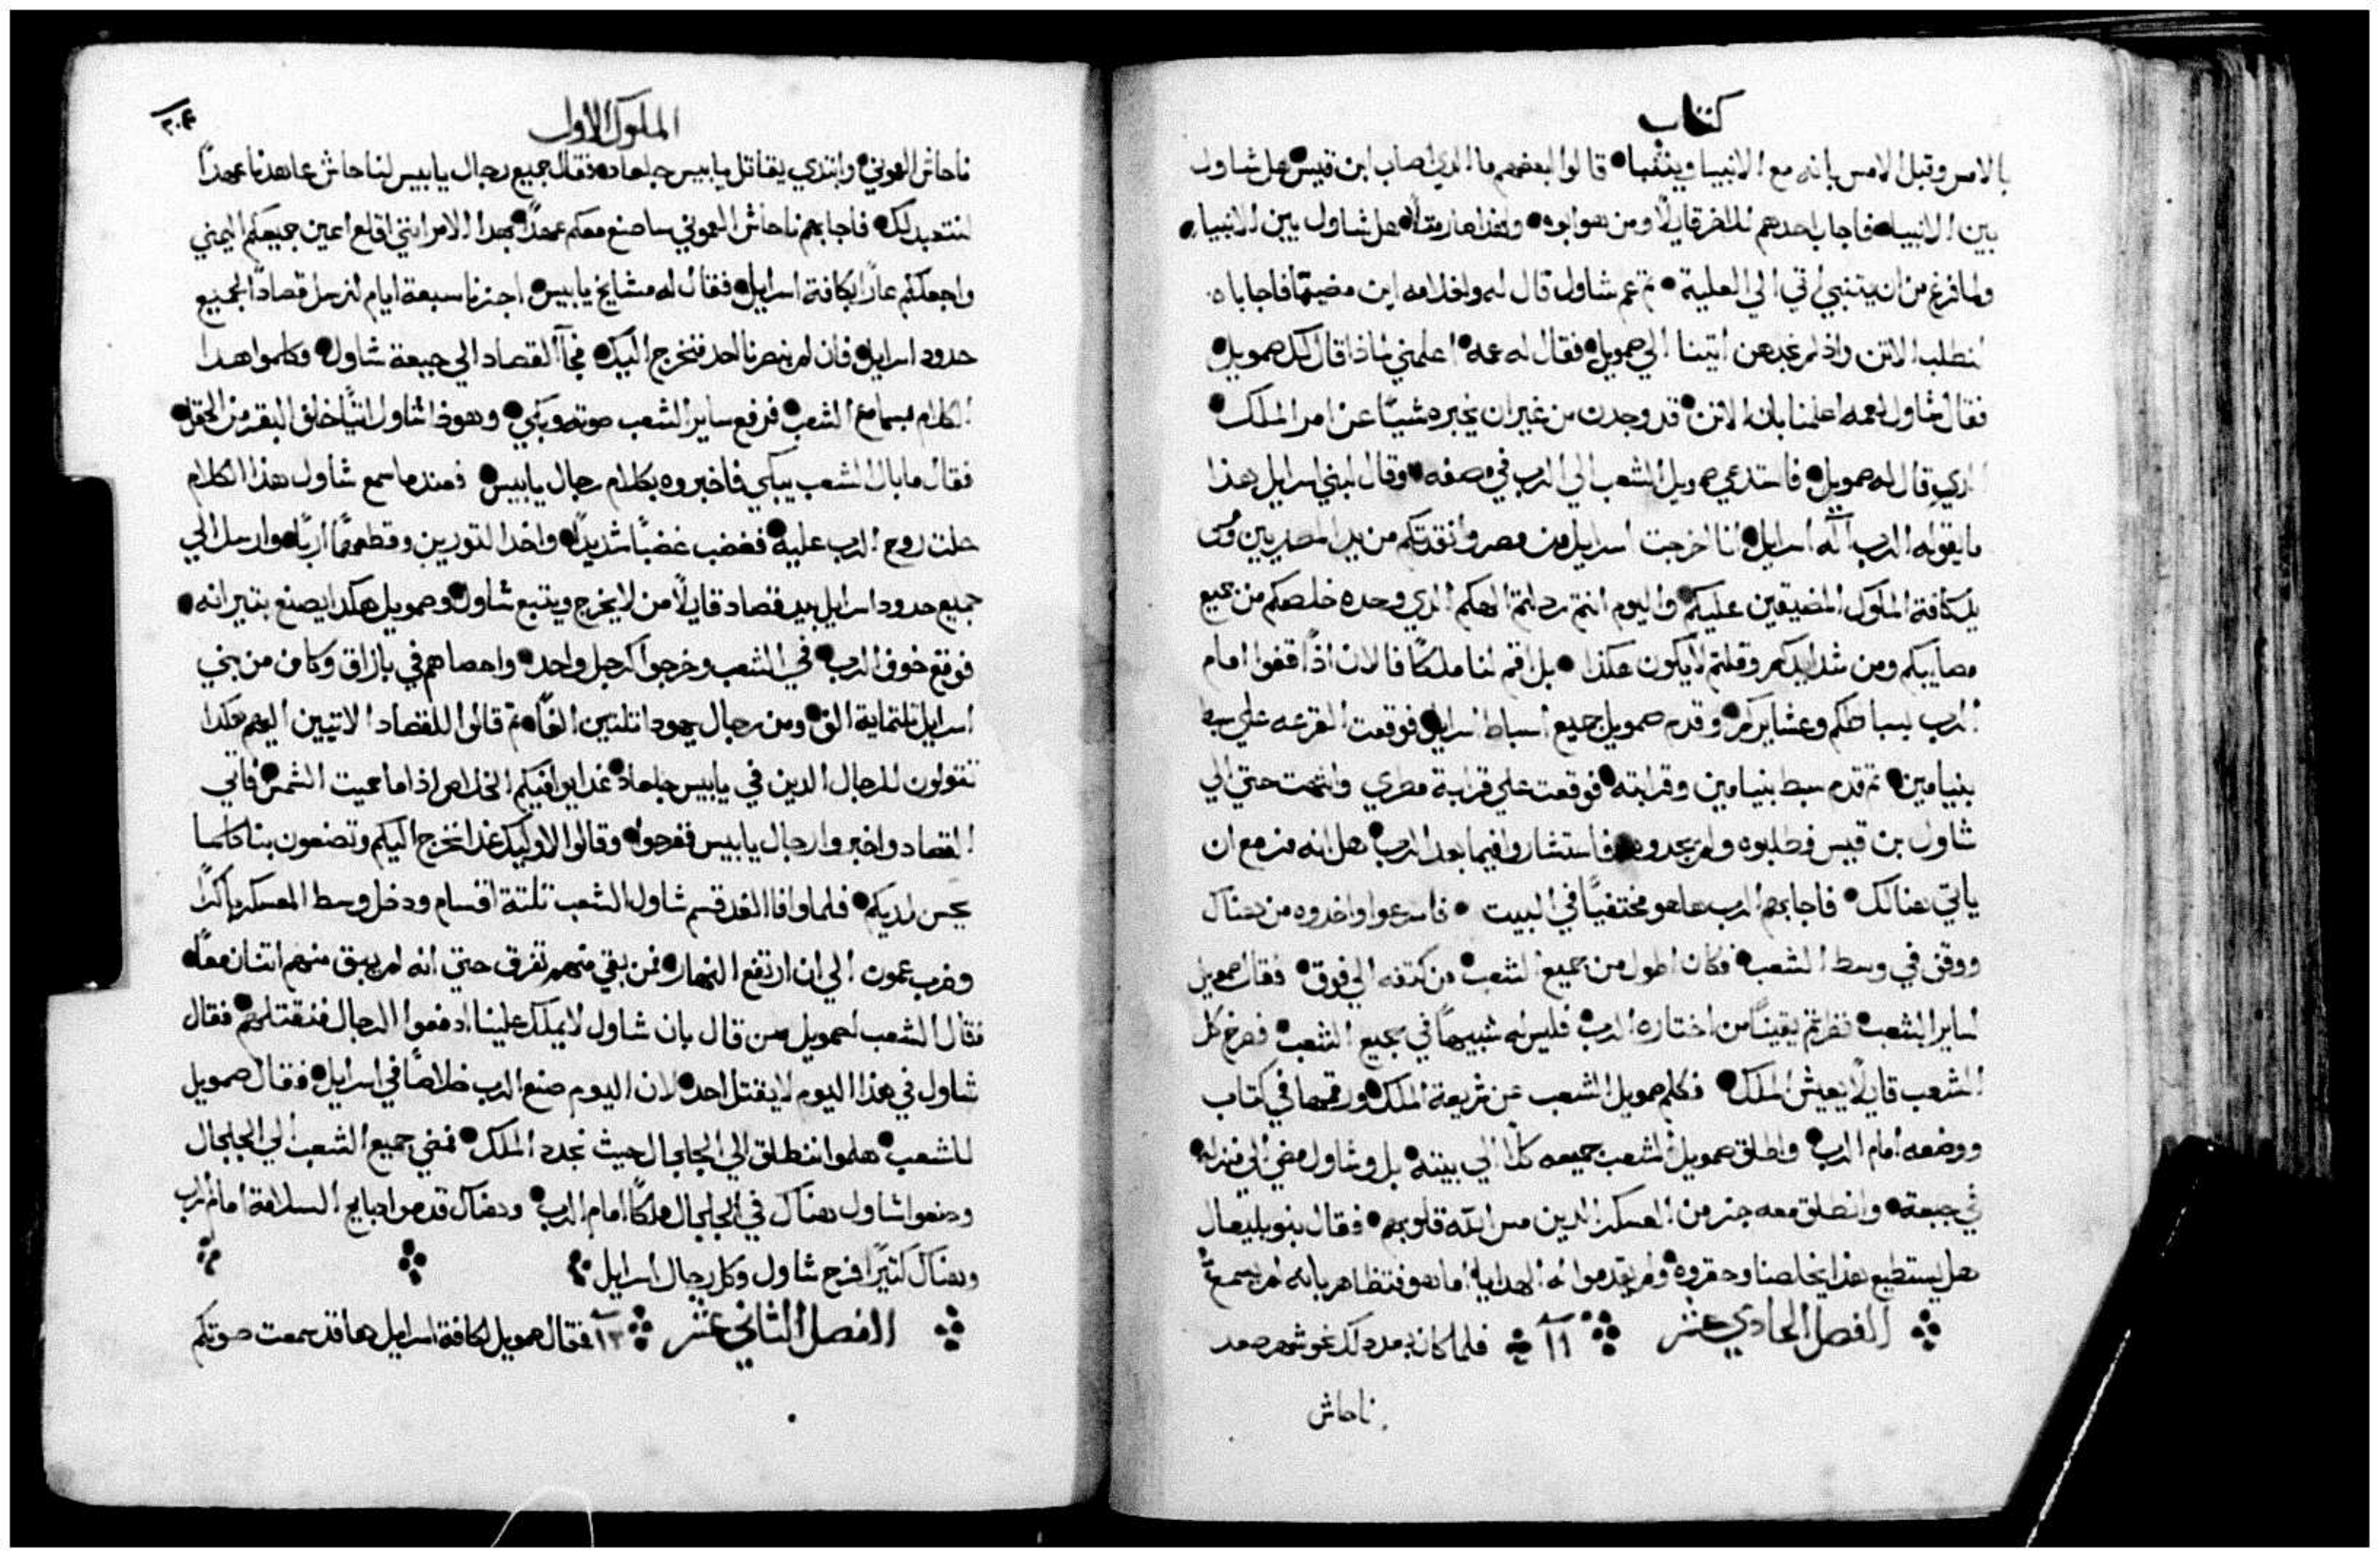 كتاب
بالامس وقبل الامس بانه مع الانبيا ويتنبا قالوا لبعضهم ما الدي اصاب ابن قيس هل شاول
بين الانبيا فاجاب احدهم للاخر قايلًا ومن هو ابوه ولهذا صار مثلًا هل شاول بين الانبياء
ولما فرغ من ان يتنبي اتي الي العلية ثم عم شاول قال له ولغلامه اين مضيتما فاجاباه
لنطلب الاتن واذ لم نجدهن اتينا الي صمويل فقال له عمه اعلمني ماذا قال لك صمويل
فقال شاول لعمه اعلمنا بان الاتن قد وجدت من غير ان يخبره شيئًا عن امر الملك
الدي قال له صمويل فاستدعي صمويل الشعب الي الرب في مصفه وقال لبني اسرايل هذا
ما يقوله الرب اله اسرايل انا اخرجت اسرايل من مصر وانقدتكم من يد المصريين ومن
يد كافة الملوك المضيقين عليكم واليوم انتم ردلتم الهكم الدي وحده خلصكم من جميع
مصايبكم ومن شدايدكم وقلتم لا يكون هكذا بل اقم لنا ملكًا فالان اذًا قفوا امام
الرب بسباطكم وعشايركم وقدم صمويل جميع اسباط اسرايل فوقعت القرعه علي سبط
بنيامين ثم قدم سبط بنيامين وقرابته فوقعت علي قرابة مطري وانتهت حتي الي
شاول بن قيس فطلبوه ولم يجدوه فاستشاروا فيما بعد الرب هل انه مزمع ان
ياتي هنالك فاجابهم الرب ها هو مختفيًا في البيت فاسرعوا واخدوه من هناك
ووقف في وسط الشعب فكان اطول من جميع الشعب من كتفه الي فوق فقال صمويل
لساير الشعب نظرتم يقينًا من اختاره الرب فليس له شبيهًا في جميع الشعب فصرخ كل
الشعب قايلًا يعيش الملك فكلم صمويل الشعب عن شريعة الملك ورقمها في كتاب
ووضعه امام الرب واطلق صمويل الشعب جميعه كلًا الي بيته بل وشاول مضي الي منزله
في جبعة وانطلق معه جز من العسكر الدين مس الله قلوبهم فقال بنو بليعال
هل يستطيع هذا يخلصنا وحقروه ولم يقدموا له الهدايا اما هو فتظاهر بانه لم يسمع
الفصل الحادي عشر ١١ فلما كان بعد دلك نحو شهر صعد
ناحاش
الملوك الاول
٢٠٤
ناحاش العموني وابتدي يقاتل يابيس جلعاد فقال جميع رجال يابيس لناحاش عاهدنا عهدًا
لنتعبد لك فاجابهم ناحاش العموني ساصنع معكم عهدًا بهدا الامر انني اقلع اعين جميعكم اليمني
واجعلكم عارًا بكافة اسرايل فقال له مشايخ يابيس اجزنا سبعة ايام لنرسل قصادًا لجميع
حدود اسرايل فان لم ينصرنا احد فنخرج اليك فجاآ القصاد الي جبعة شاول وكلموا هدا
الكلام بمسامع الشعب فرفع ساير الشعب صوته وبكي وهوذا شاول اتيًا خلف البقر من الحقل
فقال ما بال الشعب يبكي فاخبروه بكلام رجال يابيس فعندما سمع شاول هذا الكلام
حلت روح الرب عليه فغضب غضبًا شديدًا واخد الثورين وقطعهما اربًا وارسل الي
جميع حدود اسرايل بيد قصاد قايلًا من لا يخرج ويتبع شاول وصمويل هكدا يصنع بتيرانه
فوقع خوف الرب في الشعب وخرجوا كرجل واحد واحصاهم في بازاق وكان من بني
اسرايل تلتماية الف ومن رجال يهودا تلتين الفًا ثم قالوا للقصاد الاتيين اليهم هكدا
تقولون للرجال الدين في يابيس جلعاد غدا يوافيكم الخلاص اذا ما حميت الشمس فاتي
القصاد واخبروا رجال يابيس ففرحوا وقالوا لاوليك غدا نخرج اليكم وتصنعون بنا كلما
يحسن لديكم فلما وافا الغد قسم شاول الشعب تلتة اقسام ودخل وسط المعسكر باكرًا
وضرب عمون الي ان ارتفع النهار ومن بقي منهم تفرق حتي انه لم يبق منهم اتنان معًا
فقال الشعب لصمويل من قال بان شاول لا يملك علينا ادفعوا الرجال فنقتلهم فقال
شاول في هذا اليوم لا يقتل احد لان اليوم صنع الرب خلاصًا في اسرايل فقال صمويل
للشعب هلموا ننطلق الي الجلجال حيث نجدد الملك فمضي جميع الشعب الي الجلجال
وصنعوا شاول هناك في الجلجال ملكًا امام الرب وهناك قدموا دبايح السلامة امام الرب
وهناك كثيرًا فرح شاول وكل رجال اسرايل
الفصل الثاني عشر ١٢ فقال صمويل لكافة اسرايل ها قد سمعت صوتكم